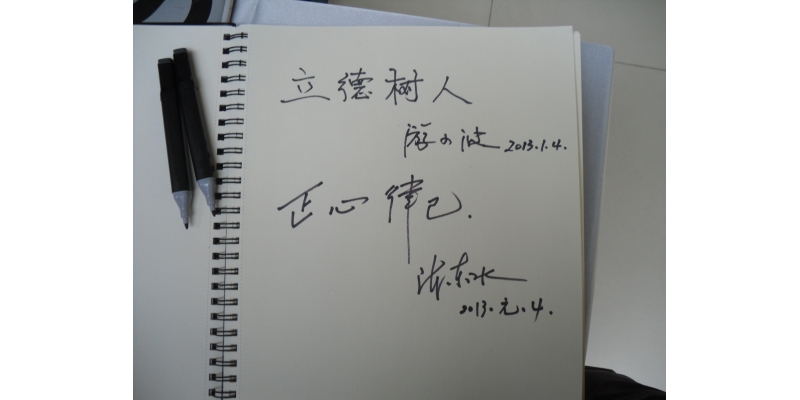 立德树人
游小波 2013.1.4.
正心律己.
东水
2013.元.4.